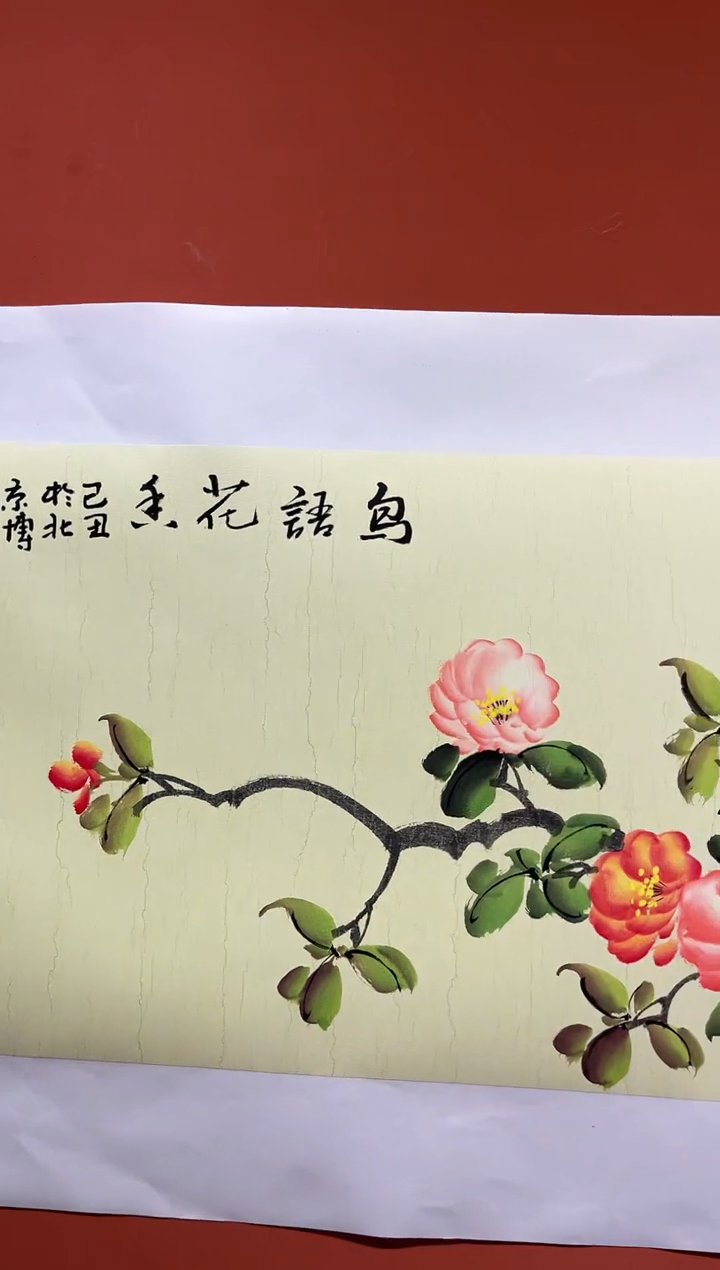 鳥語花香
己丑
於北
京博